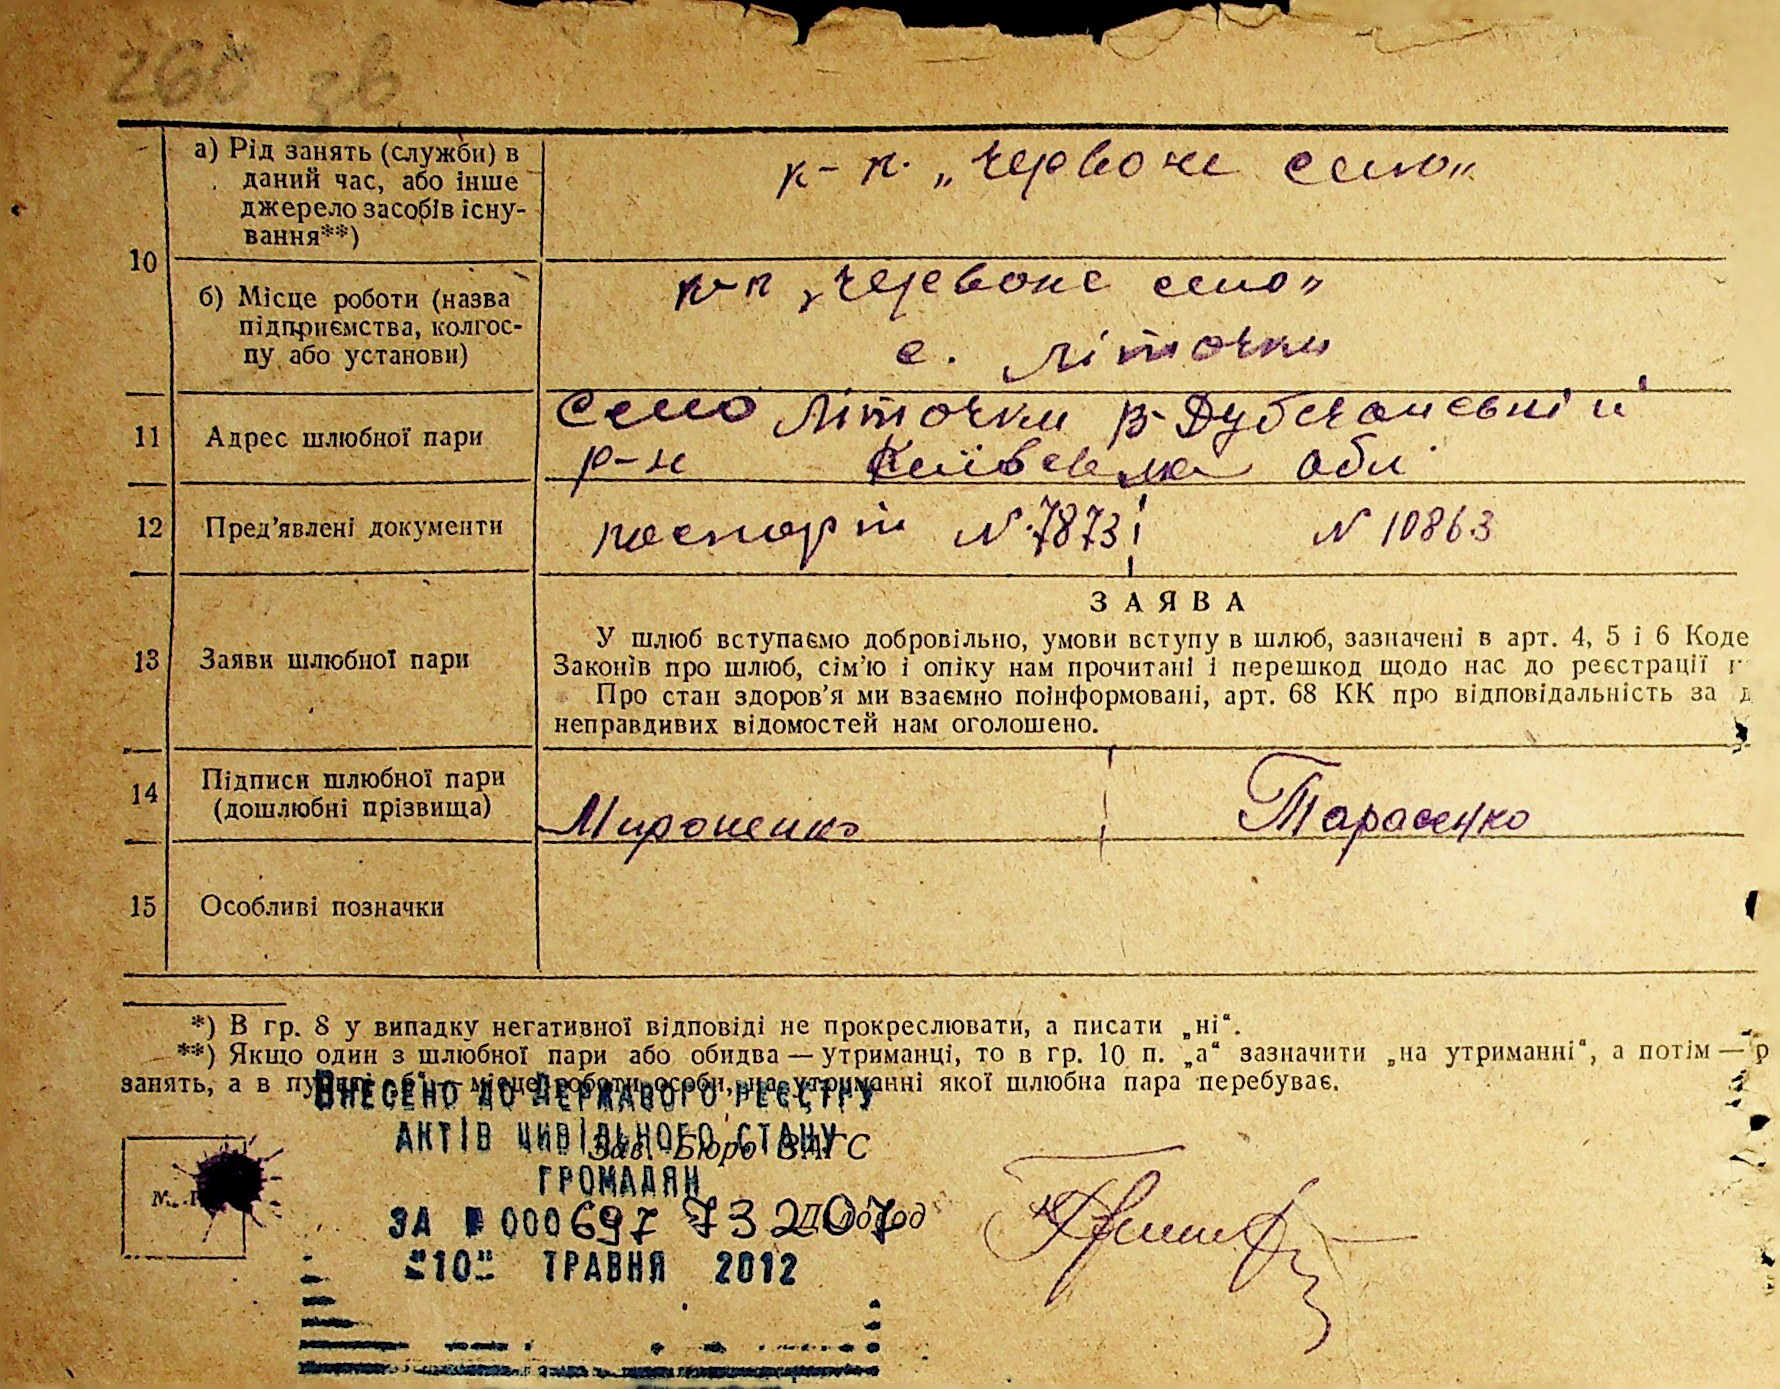 260 зв
10
а) Рід занять (служби) в
даний час, або інше
джерело засобів існу-
вання**)
к-п. „Червоне село“
б) Місце роботи (назва
підприємства, колгос-
пу або установи)
к-п „Червоне село“
с. Літочки
11 Адрес шлюбної пари
Село Літочки В-Дубечанський
р-н Київська обл.
12 Пред’явлені документи паспорт № 7873 № 10863
ЗАЯВА
13 Заяви шлюбної пари
У шлюб вступаємо добровільно, умови вступу в шлюб, зазначені в арт. 4, 5 і 6 Коде
Законів про шлюб, сім’ю і опіку нам прочитані і перешкод щодо нас до реєстрації
Про стан здоров’я ми взаємно поінформовані, арт. 68 КК про відповідальність за д
неправдивих відомостей нам оголошено.
14 Підписи шлюбної пари
(дошлюбні прізвища)
Мироненко Тарасенко
15 Особливі позначки
*) В гр. 8 у випадку негативної відповіді не прокреслювати, а писати „ні“.
**) Якщо один з шлюбної пари або обидва — утриманці, то в гр. 10 п. „а“ зазначити „на утриманні“, а потім — р
занять, а в пункті „б“ — місце роботи особи, на утриманні якої шлюбна пара перебуває.
ВНЕСЕНО ДО ДЕРЖАВОГО РЕЄСТРУ
АКТІВ ЦИВІЛЬНОГО СТАНУ
Зав. Бюро ЗАГС
ГРОМАДЯН
М.
ЗА № 000697 73207
Діловод
"10" ТРАВНЯ 2012